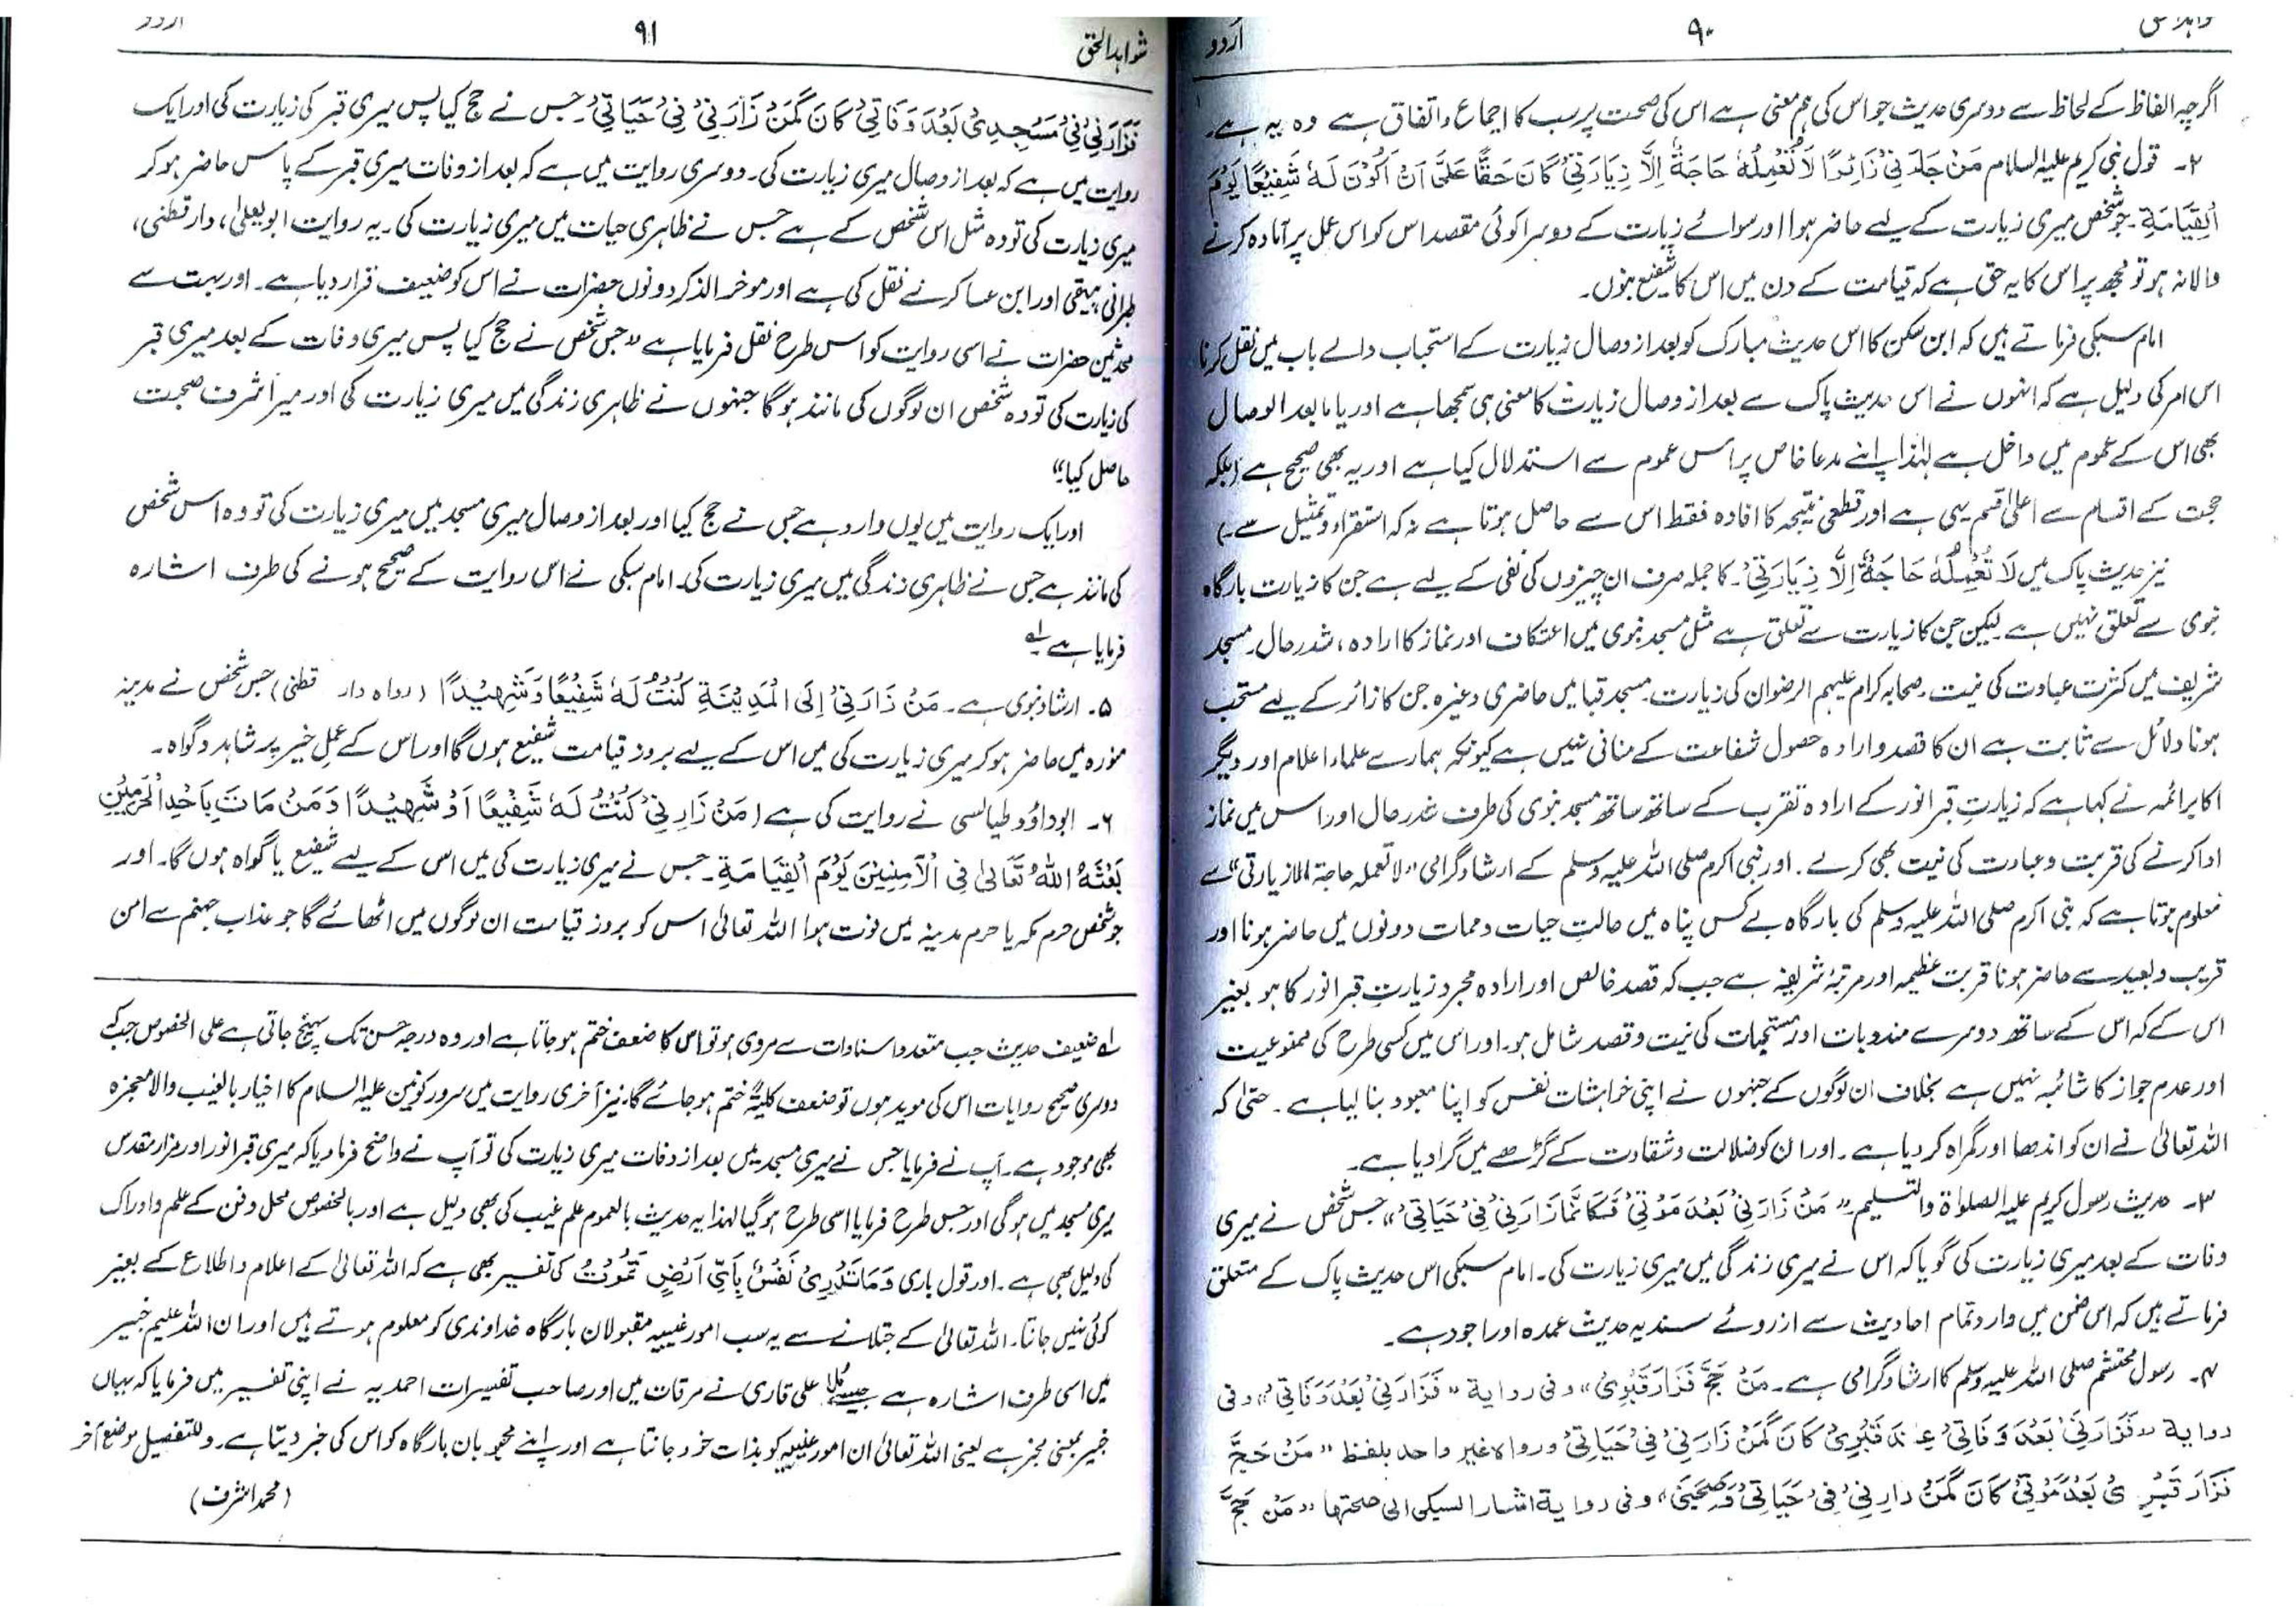 ۹۰
اُردو
اگرچہ الفاظ کے لحاظ سے دوسری حدیث جو اس کی ہم معنی ہے اس کی صحت پر سب کا اجماع و اتفاق ہے وہ یہ ہے۔
۲۔ قول نبی کریم علیہ السلام مَنْ جَاءَنِیْ زَائِرًا لَا تُعْمِلُہٗ حَاجَةٌ اِلَّا زِیَارَتِیْ کَانَ حَقًّا عَلَیَّ اَنْ اَکُوْنَ لَہٗ شَفِیْعًا یَوْمَ
الْقِیَامَةِ۔ جو شخص میری زیارت کے لیے حاضر ہوا اور سوائے زیارت کے دوسرا کوئی مقصد اس کو اس عمل پر آمادہ کرنے
والا نہ ہو تو مجھ پر اس کا یہ حق ہے کہ قیامت کے دن میں اس کا شفیع بنوں۔
امام سبکی فرماتے ہیں کہ ابن سکن کا اس حدیث مبارک کو بعد از وصال زیارت کے استحباب والے باب میں نقل کرنا
اس امر کی دلیل ہے کہ انہوں نے اس حدیث پاک سے بعد از وصال زیارت کا معنی ہی سمجھا ہے اور یا ما بعد الوصال
بھی اس کے عموم میں داخل ہے لہٰذا اپنے مدعا خاص پر اس عموم سے استدلال کیا ہے اور یہ بھی صحیح ہے (بلکہ
حجت کے اقسام سے اعلیٰ قسم یہی ہے اور قطعی نتیجہ کا افادہ فقط اس سے حاصل ہوتا ہے نہ کہ استقراء و تمثیل سے۔)
نیز حدیث پاک میں لَا تُعْمِلُہٗ حَاجَةٌ اِلَّا زِیَارَتِیْ۔ کا جملہ صرف ان چیزوں کی نفی کے لیے ہے جن کا زیارت بارگاہ
نبوی سے تعلق نہیں ہے لیکن جن کا زیارت سے تعلق ہے مثل مسجد نبوی میں اعتکاف اور نماز کا ارادہ، شدر حال۔ مسجد
شریف میں کثرت عبادت کی نیت۔ صحابہ کرام علیہم الرضوان کی زیارت۔ مسجد قبا میں حاضری وغیرہ جن کا زائر کے لیے مستحب
ہونا دلائل سے ثابت ہے ان کا قصد و ارادہ حصول شفاعت کے منافی نہیں ہے کیونکہ ہمارے علماء اعلام اور دیگر
اکابر ائمہ نے کہا ہے کہ زیارتِ قبر انور کے ارادہ تقرب کے ساتھ ساتھ مسجد نبوی کی طرف شدر حال اور اس میں نماز
ادا کرنے کی قربت و عبادت کی نیت بھی کرے۔ اور نبی اکرم صلی اللہ علیہ وسلم کے ارشاد گرامی "لا تعملہ حاجة الا زیارتی" سے
معلوم ہوتا ہے کہ نبی اکرم صلی اللہ علیہ وسلم کی بارگاہ بے کس پناہ میں حالتِ حیات و ممات دونوں میں حاضر ہونا اور
قریب و بعید سے حاضر ہونا قربت عظیمہ اور مرتبۂ شریفہ ہے جب کہ قصد خالص اور ارادہ مجرد زیارتِ قبر انور کا ہو بغیر
اس کے کہ اس کے ساتھ دوسرے مندوبات اور مستحبات کی نیت و قصد شامل ہو۔ اور اس میں کسی طرح کی ممنوعیت
اور عدم جواز کا شائبہ نہیں ہے بخلاف ان لوگوں کے جنہوں نے اپنی خواہشات نفس کو اپنا معبود بنا لیا ہے۔ حتیٰ کہ
اللہ تعالیٰ نے ان کو اندھا اور گمراہ کر دیا ہے۔ اور ان کو ضلالت و شقاوت کے گڑھے میں گرا دیا ہے۔
۳۔ حدیث رسول کریم علیہ الصلوٰۃ والتسلیم۔ "مَنْ زَارَنِیْ بَعْدَ مَوْتِیْ فَکَاَنَّمَا زَارَنِیْ فِیْ حَیَاتِیْ" جس شخص نے میری
وفات کے بعد میری زیارت کی گویا کہ اس نے میری زندگی میں میری زیارت کی۔ امام سبکی اس حدیث پاک کے متعلق
فرماتے ہیں کہ اس ضمن میں وارد تمام احادیث سے ازروئے سند یہ حدیث عمدہ اور اجود ہے۔
۴۔ رسول محتشم صلی اللہ علیہ وسلم کا ارشاد گرامی ہے۔ مَنْ حَجَّ فَزَارَ قَبْرِیْ" وفی روایة "فَزَارَنِیْ بَعْدَ وَفَاتِیْ" وفی
روایة "فَزَارَنِیْ بَعْدَ وَفَاتِیْ عِنْدَ قَبْرِیْ کَانَ کَمَنْ زَارَنِیْ فِیْ حَیَاتِیْ ورواہ غیر واحد بلفظ "مَنْ حَجَّ
فَزَارَ قَبْرِیْ بَعْدَ مَوْتِیْ کَانَ کَمَنْ زارنِیْ فِیْ حَیَاتِیْ وَصَحِبَنِیْ" وفی روایة اشار السبکی الی صحتها "مَنْ حَجَّ
شواہد الحق
۹۱
اردو
فَزَارَنِیْ فِیْ مَسْجِدِیْ بَعْدَ وَفَاتِیْ کَانَ کَمَنْ زَارَنِیْ فِیْ حَیَاتِیْ۔ جس نے حج کیا پس میری قبر کی زیارت کی اور ایک
روایت میں ہے کہ بعد از وصال میری زیارت کی۔ دوسری روایت میں ہے کہ بعد از وفات میری قبر کے پاس حاضر ہو کر
میری زیارت کی تو وہ مثل اس شخص کے ہے جس نے ظاہری حیات میں میری زیارت کی۔ یہ روایت ابو یعلیٰ، دار قطنی،
طبرانی بیہقی اور ابن عساکر نے نقل کی ہے اور موخر الذکر دونوں حضرات نے اس کو ضعیف قرار دیا ہے۔ اور بہت سے
محدثین حضرات نے اسی روایت کو اس طرح نقل فرمایا ہے "جس شخص نے حج کیا پس میری وفات کے بعد میری قبر
کی زیارت کی تو وہ شخص ان لوگوں کی مانند ہو گا جنہوں نے ظاہری زندگی میں میری زیارت کی اور میرا شرف صحبت
حاصل کیا"
اور ایک روایت میں یوں وارد ہے جس نے حج کیا اور بعد از وصال میری مسجد میں میری زیارت کی تو وہ اس شخص
کی مانند ہے جس نے ظاہری زندگی میں میری زیارت کی۔ امام سبکی نے اس روایت کے صحیح ہونے کی طرف اشارہ
فرمایا ہے۔ لہ
۵۔ ارشاد نبوی ہے۔ مَنْ زَارَنِیْ اِلَی الْمَدِیْنَةِ کُنْتُ لَہٗ شَفِیْعًا وَشَهِیْدًا (رواہ دار قطنی) جس شخص نے مدینہ
منورہ میں حاضر ہو کر میری زیارت کی میں اس کے لیے بروز قیامت شفیع ہوں گا اور اس کے عمل خیر پر شاہد و گواہ۔
۶۔ ابو داؤد طیالسی نے روایت کی ہے (مَنْ زَارَنِیْ کُنْتُ لَہٗ شَفِیْعًا اَوْ شَهِیْدًا وَمَنْ مَاتَ بِاَحَدِ الْحَرَمَیْنِ
بَعَثَہُ اللّٰہُ تَعَالٰی فِی الْاٰمِنِیْنَ یَوْمَ الْقِیَامَةِ۔ جس نے میری زیارت کی میں اس کے لیے شفیع یا گواہ ہوں گا۔ اور
جو شخص حرم مکہ یا حرم مدینہ میں فوت ہوا اللہ تعالیٰ اس کو بروز قیامت ان لوگوں میں اٹھائے گا جو عذاب جہنم سے امن
لہ ضعیف حدیث جب متعدد اسنادات سے مروی ہو تو اس کا ضعف ختم ہو جاتا ہے اور وہ درجہ حسن تک پہنچ جاتی ہے علی الخصوص جب کہ
دوسری صحیح روایات اس کی موید ہوں تو ضعف کلیۃً ختم ہو جائے گا۔ نیز آخری روایت میں سرور کونین علیہ السلام کا اخبار بالغیب والا معجزہ
بھی موجود ہے۔ آپ نے فرمایا جس نے میری مسجد میں بعد از وفات میری زیارت کی تو آپ نے واضح فرما دیا کہ میری قبر انور اور مزار مقدس
میری مسجد میں ہو گی اور جس طرح فرمایا اسی طرح ہو گیا لہٰذا یہ حدیث بالعموم علم غیب کی بھی دلیل ہے اور بالخصوص محل دفن کے علم و ادراک
کی دلیل بھی ہے۔ اور قول باری وَمَا تَدْرِیْ نَفْسٌ بِاَیِّ اَرْضٍ تَمُوْتُ کی تفسیر بھی ہے کہ اللہ تعالیٰ کے اعلام و اطلاع کے بغیر
کوئی نہیں جانتا۔ اللہ تعالیٰ کے جتلانے سے یہ سب امور غیبیہ مقبولان بارگاہ خداوندی کو معلوم ہوتے ہیں اور ان اللہ علیم خبیر
میں اسی طرف اشارہ ہے جیسے ملا علی قاری نے مرقات میں اور صاحب تفسیرات احمدیہ نے اپنی تفسیر میں فرمایا کہ یہاں
خبیر بمعنی مخبر ہے یعنی اللہ تعالیٰ ان امور غیبیہ کو بذات خود جانتا ہے اور اپنے محبوبان بارگاہ کو اس کی خبر دیتا ہے۔ وللتفصیل موضع آخر
(محمد اشرف)